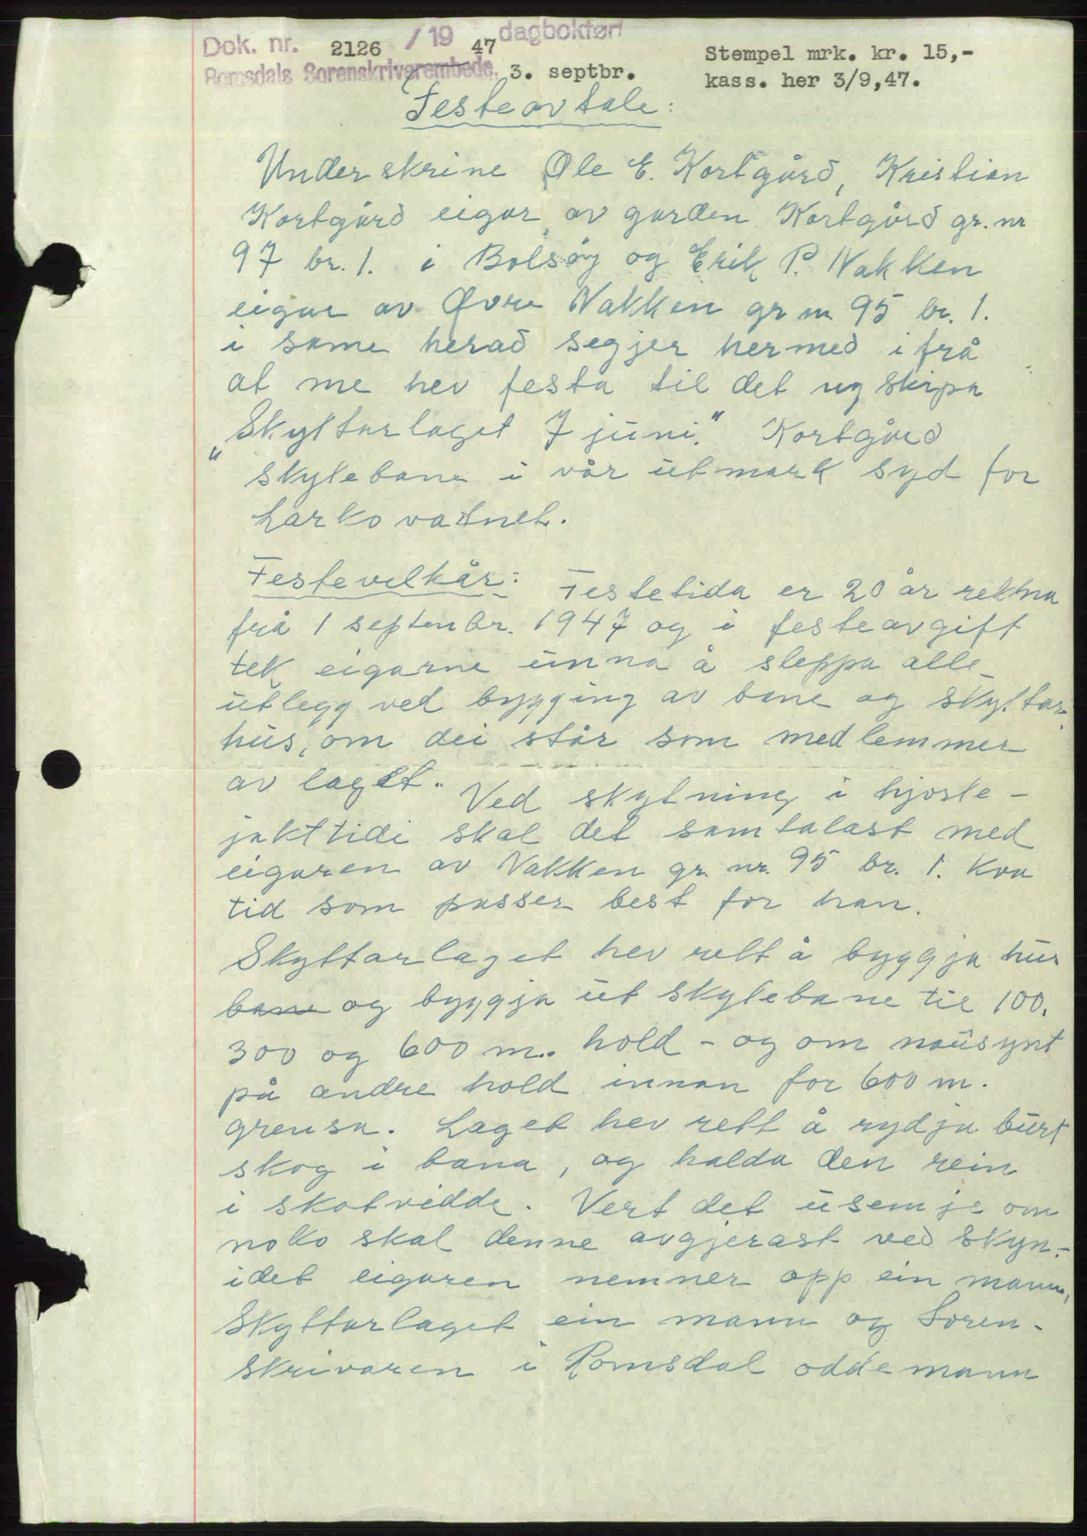 Dok. nr. 2126 / 19 47 dagbokført
Romsdals Sorenskriverembede, 3. septbr.
Stempel mrk. kr. 15,-
kass. her 3/9,47.
Festeavtale:
Underskrine Ole E. Kortgård, Kristian
Kortgård eigar av garden Kortgård gr. nr
97 br. 1. i Bolsøy og Erik P. Nakken
eigar av Øvre Nakken gr nr 95 br. 1.
i same herad segjer hermed ifrå
at me hev festa til det ny skipa
"Skyttarlaget 7 juni." Kortgård
skytebane i vår utmark syd for
Larkovatnet.
Festevilkår: Festetida er 20 år rekna
frå 1 septenbr. 1947 og i festeavgift
tek eigarne unna å sleppa alle
utlegg ved bygging av bane og skyttar-
hus, om dei står som medlemmer
av laget. Ved skytning i hjorte-
jakttidi skal det samtalast med
eigaren av Nakken gr. nr. 95 br. 1. kva
tid som passer best for han.
Skyttarlaget hev rett å byggja hus
bane og byggja ut skytebane til 100.
300 og 600 m. hold - og om nausynt
på andre hold innan for 600 m.
grensa. Laget hev rett å rydja burt
skog i bana, og halda den rein
i skotvidde. Vert det usemje om
noko skal denne avgjerast ved skyn.-
idet eigaren nemner opp ein mann,
Skyttarlaget ein mann og Soren-
skrivaren i Romsdal oddemann